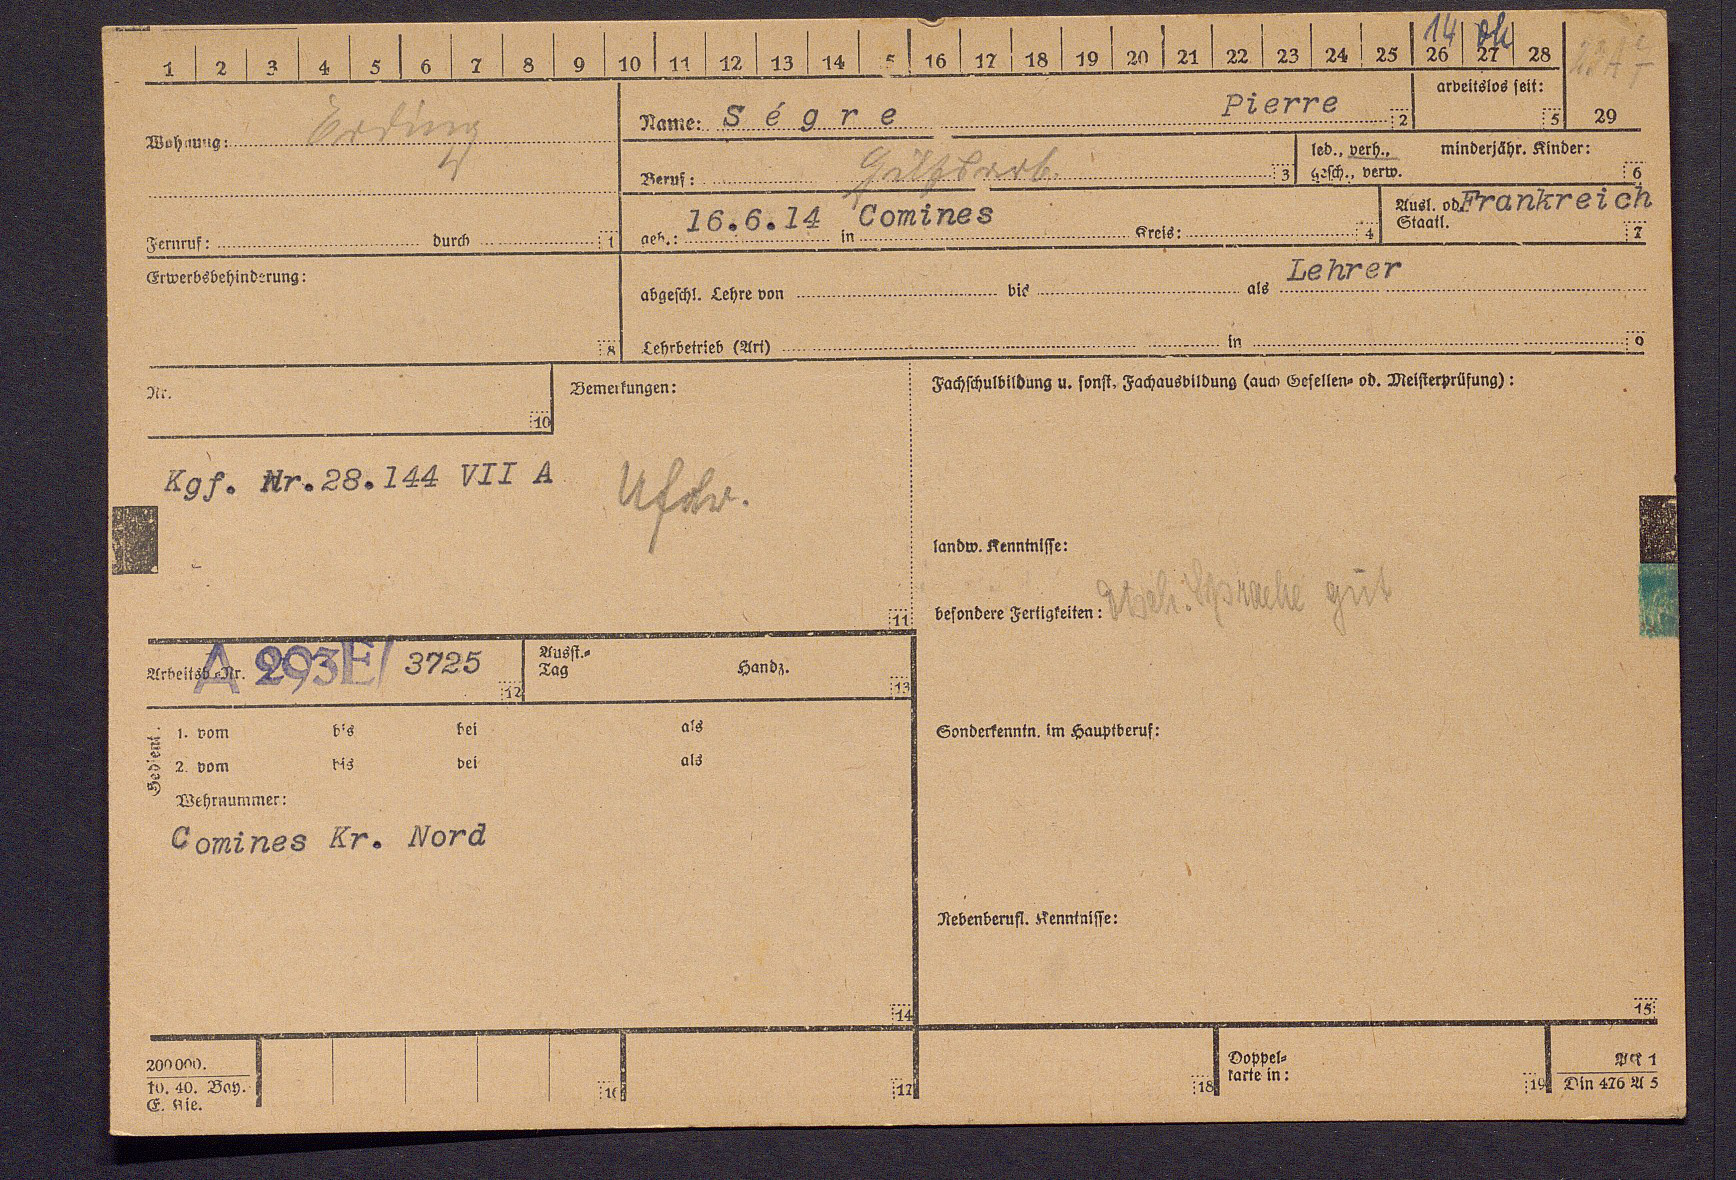 14 ok
1 2 3 4 5 6 7 8 9 10 11 12 13 14 5 16 17 18 19 20 21 22 23 24 25 26 27 28
Wohnung: Erding
Name: Ségre Pierre 2
arbeitslos seit: 5
29
Beruf: Hilfsarb. 3
led., verh., gesch., verw.
minderjähr. Kinder: 6
Fernruf: durch 1
geb.: 16.6.14 in Comines Kreis: 4
Ausl. od. Staatl. Frankreich 7
Erwerbsbehinderung: 8
abgeschl. Lehre von bis als Lehrer
Lehrbetrieb (Art) in 9
Nr. 10
Bemerkungen:
Fachschulbildung u. sonst. Fachausbildung (auch Gesellen- od. Meisterprüfung):
Kgf. Nr.28.144 VII A
landw. Kenntnisse:
besondere Fertigkeiten: dtsch. Sprache gut
11
Arbeitsb.-Nr. A 293E/ 3725 12
Ausst.-Tag Handz. 13
Gedient.
1. vom bis bei als
2. vom bis bei als
Wehrnummer:
Comines Kr. Nord
14
Sonderkenntn. im Hauptberuf:
Nebenberufl. Kenntnisse:
15
200000.
10. 40. Bay.
16
17
18
Doppelkarte in: 19
AK 1
Din 476 A 5